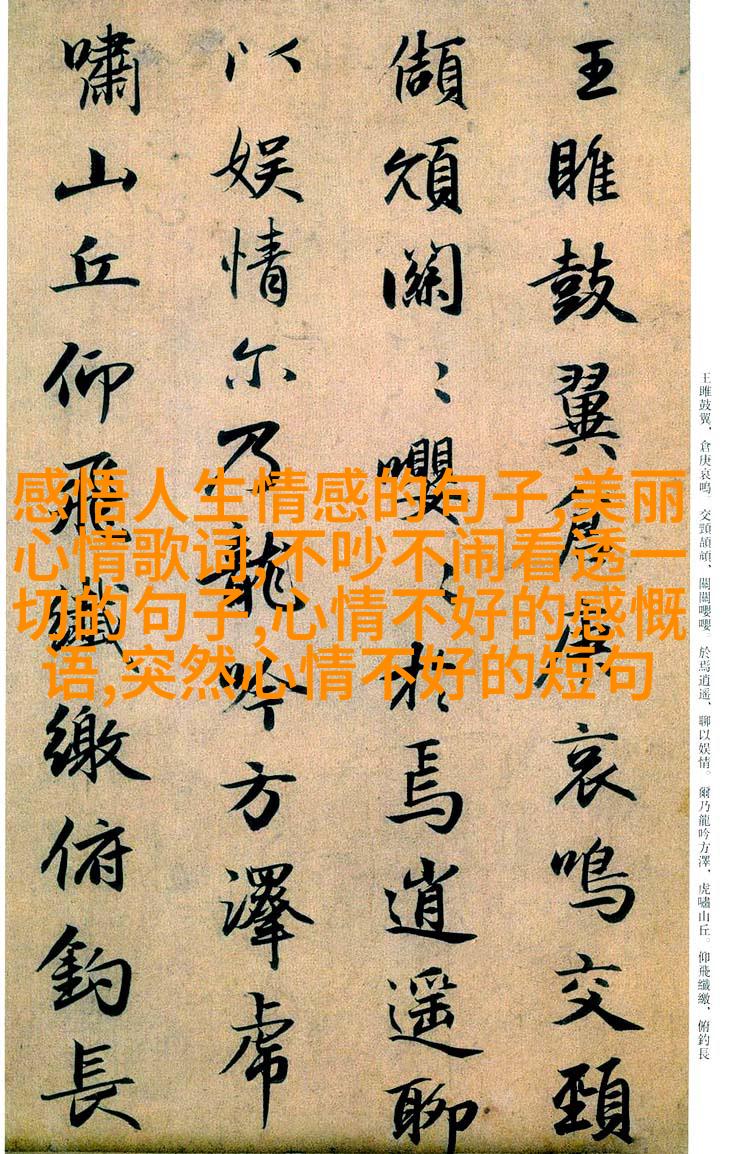 王雎鼓翼倉庚哀鳴交頸
頡頏關〻嚶〻於焉逍遥聊
以娱情尔乃龍吟方澤虎
嘯山丘仰飛纖繳俯釣長
感悟人生情感的句子,美丽
心情歌词,不吵不闹看透一
切的句子,心情不好的感慨
语,突然心情不好的短句
王雎鼓翼、倉庚哀鳴。交頸頡頏、關關嚶嚶。於焉逍遥、聊以娱情。爾乃龍吟方澤、虎嘯山丘。仰飛纖繳、俯釣長